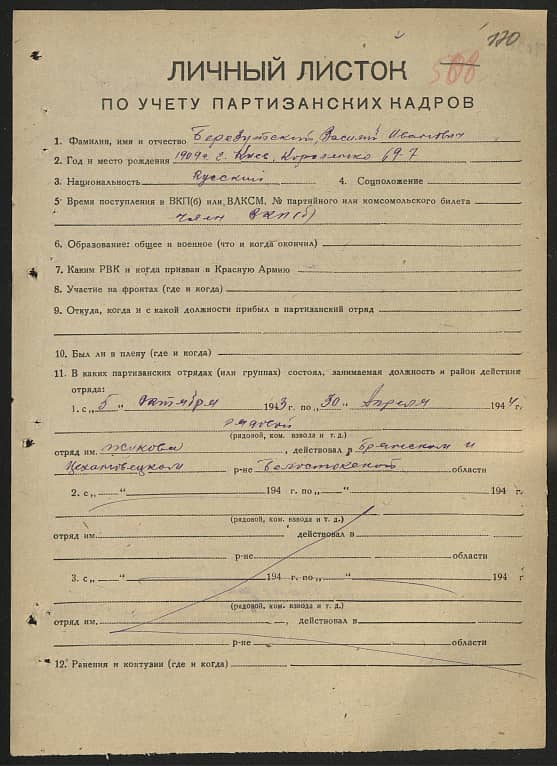 170
508
ЛИЧНЫЙ ЛИСТОК
ПО УЧЕТУ ПАРТИЗАНСКИХ КАДРОВ
1. Фамилия, имя и отчество Березутский, Василий Иванович
2. Год и место рождения 1909 г. г. Киев, Короленко 69-7
3. Национальность Русский 4. Соцположение
5. Время поступления в ВКП(б) или ВЛКСМ, № партийного или комсомольского билета
член ВКП(б)
6. Образование: общее и военное (что и когда окончил)
7. Каким РВК и когда призван в Красную Армию
8. Участие на фронтах (где и когда)
9. Откуда, когда и с какой должности прибыл в партизанский отряд
10. Был ли в плену (где и когда)
11. В каких партизанских отрядах (или группах) состоял, занимаемая должность и район действия
отряда:
1. с „5" октября 1943 г. по „30" Апреля 1944 г.
рядовой
(рядовой, ком. взвода и т. д.)
отряд им. Жукова, действовал в Брянском и
Цехановецком р-не Белостокской области
2. с „ " 194 г. по „ " 194 г.
(рядовой, ком. взвода и т. д.)
отряд им. действовал в
р-не области
3. с „ " 194 г. по „ " 194 г.
(рядовой, ком. взвода и т. д.)
отряд им. , действовал в
р-не области
12. Ранения и контузии (где и когда)